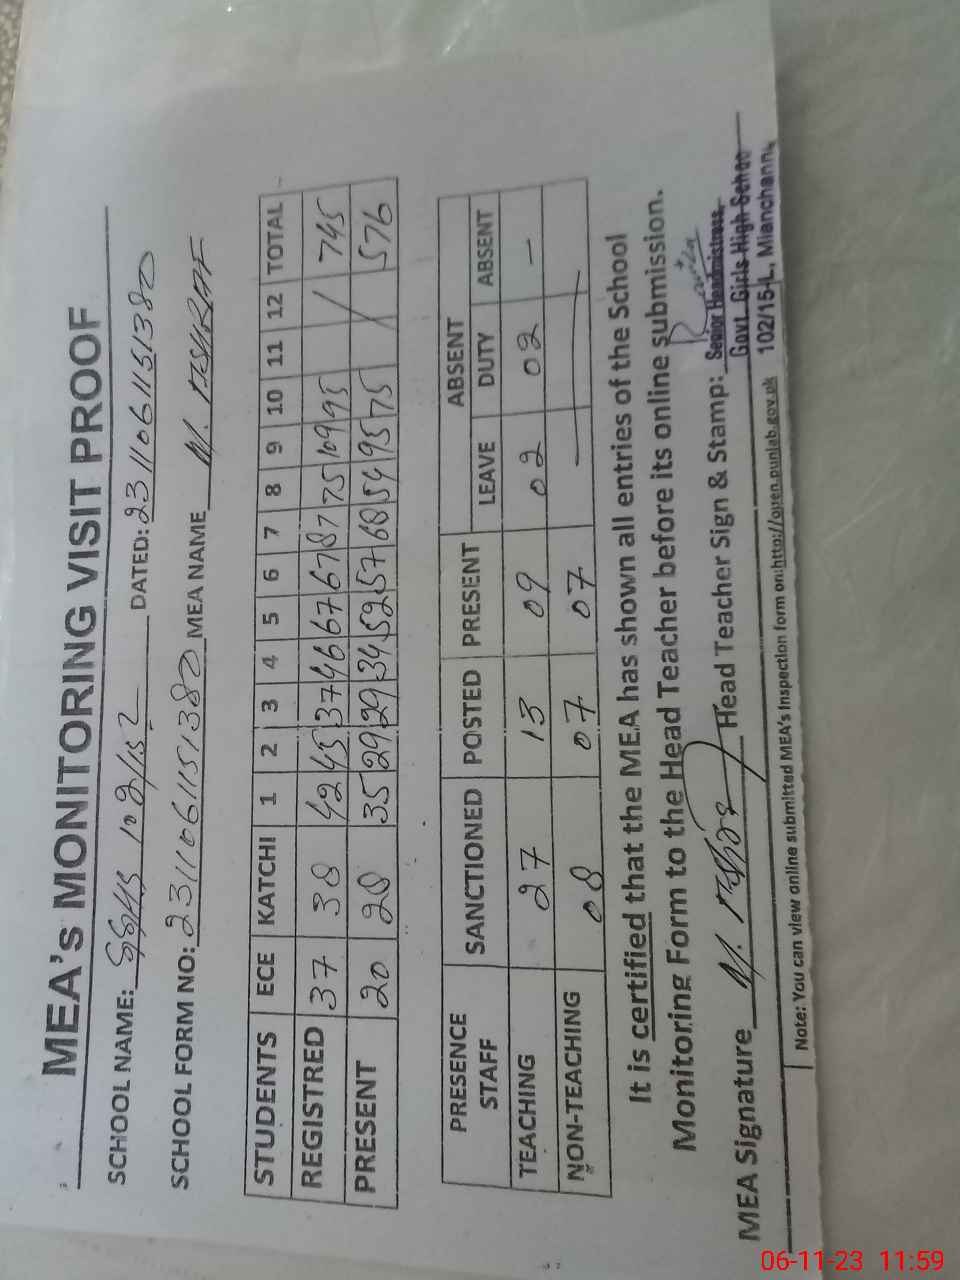 MEA's MONITORING VISIT PROOF
SCHOOL NAME: GGHS 102/15L DATED: 2311061151380
SCHOOL FORM NO: 2311061151380 MEA NAME M. ASHRAF
STUDENTS ECE KATCHI 1 2 3 4 5 6 7 8 9 10 11 12 TOTAL
REGISTRED 37 38 42 45 37 46 67 67 87 75 109 95 / 745
PRESENT 20 28 35 29 29 34 52 57 68 54 95 75 / 576
PRESENCE STAFF SANCTIONED POSTED PRESENT ABSENT
LEAVE DUTY ABSENT
TEACHING 27 13 09 02 02 –
NON-TEACHING 08 07 07 — —
It is certified that the MEA has shown all entries of the School
Monitoring Form to the Head Teacher before its online submission.
MEA Signature M. Head Teacher Sign & Stamp: Senior Headmistress
Govt. Girls High School
102/15-L, Mianchannu
Note: You can view online submitted MEA's Inspection form on:http://open.punjab.gov.pk
06-11-23 11:59